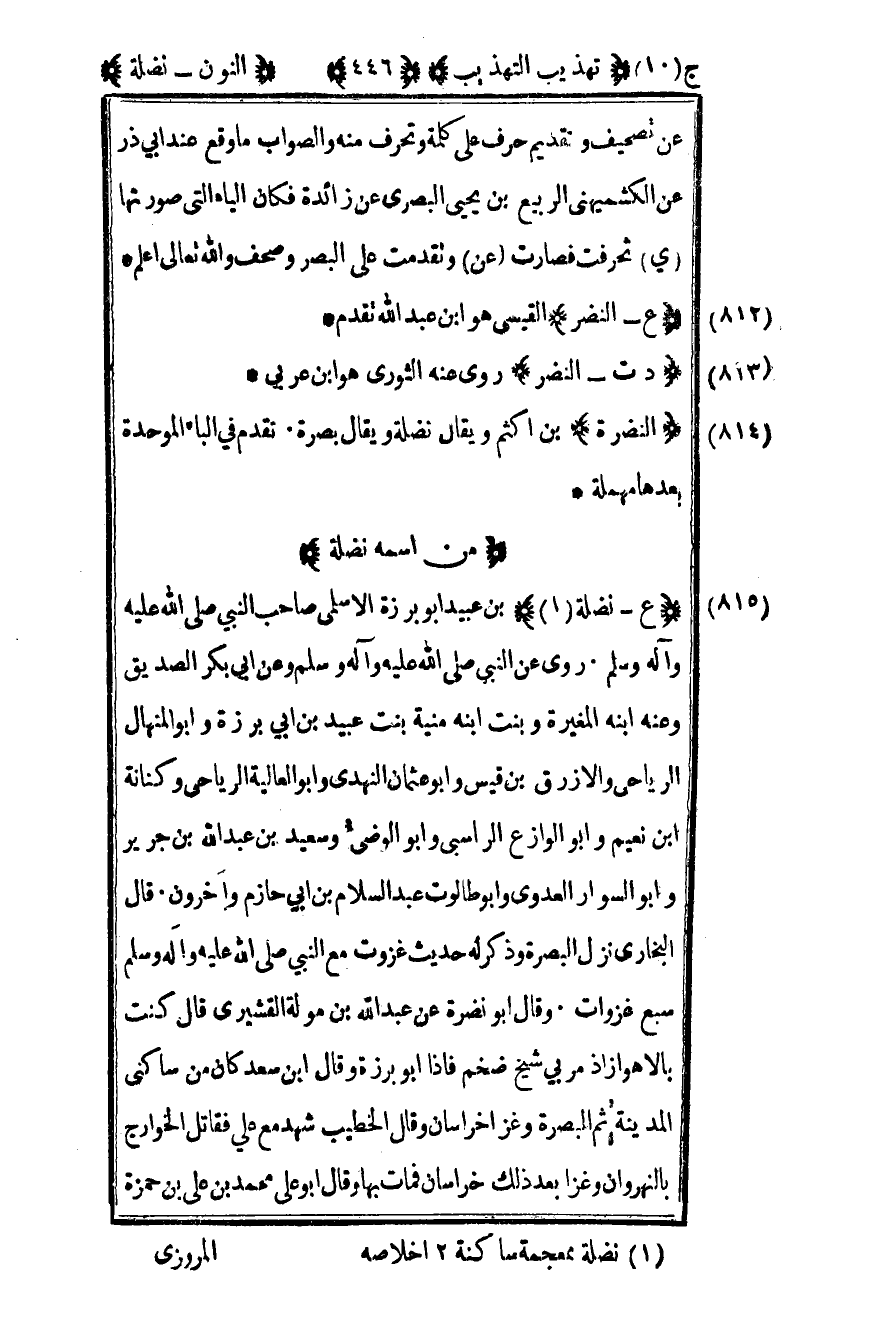 ج(١٠) ﴿ تهذيب التهذيب ﴾ ﴿ ٤٤٦ ﴾ ﴿ النون ــ نضلة ﴾
عن تصحيف و تقديم حرف على كلمة وتحرف منه والصواب ماوقع عندابي ذر
عن الكشميهنى الربيع بن يحيى البصرى عن زائدة فكان الياء التى صورتها
(ي) تحرفت فصارت (عن) وتقدمت على البصر وصحف والله تعالى اعلم *
(٨١٢) ﴿ ع ــ النضر ﴾ القيسى هو ابن عبد الله تقدم *
(٨١٣) ﴿ د ت ــ النضر ﴾ روى عنه الثورى هو ابن عربي *
(٨١٤) ﴿ النضرة ﴾ بن اكثم ويقال نضلة ويقال بصرة ٠ تقدم في الباء الموحدة
بعدها مهملة *
﴿ من اسمه نضلة ﴾
(٨١٥) ﴿ ع ــ نضلة (١) ﴾ بن عبيد ابو برزة الاسلمى صاحب النبي صلى الله عليه
وآله وسلم ٠ روى عن النبي صلى الله عليه وآله وسلم وعن ابي بكر الصديق
وعنه ابنه المغيرة وبنت ابنه منية بنت عبيد بن ابي برزة وابو المنهال
الرياحى والازرق بن قيس وابو عثمان النهدى وابو العالية الرياحى وكنانة
ابن نعيم وابو الوازع الراسبى وابو الوضىء وسعيد بن عبدالله بن جرير
وابو السوار العدوى وابوطالوت عبد السلام بن ابي حازم وآخرون ٠ قال
البخارى نزل البصرة وذكر له حديث غزوت مع النبي صلى الله عليه وآله وسلم
سبع غزوات ٠ وقال ابو نضرة عن عبدالله بن مولة القشيرى قال كنت
بالاهواز اذ مر بي شيخ ضخم فاذا ابو برزة وقال ابن سعد كان من ساكنى
المدينة ثم البصرة وغزا خراسان وقال الخطيب شهد مع علي فقاتل الخوارج
بالنهروان وغزا بعد ذلك خراسان فمات بها وقال ابو على محمد بن على بن حمزة
(١) نضلة بمعجمة ساكنة ١٢ خلاصه المروزى